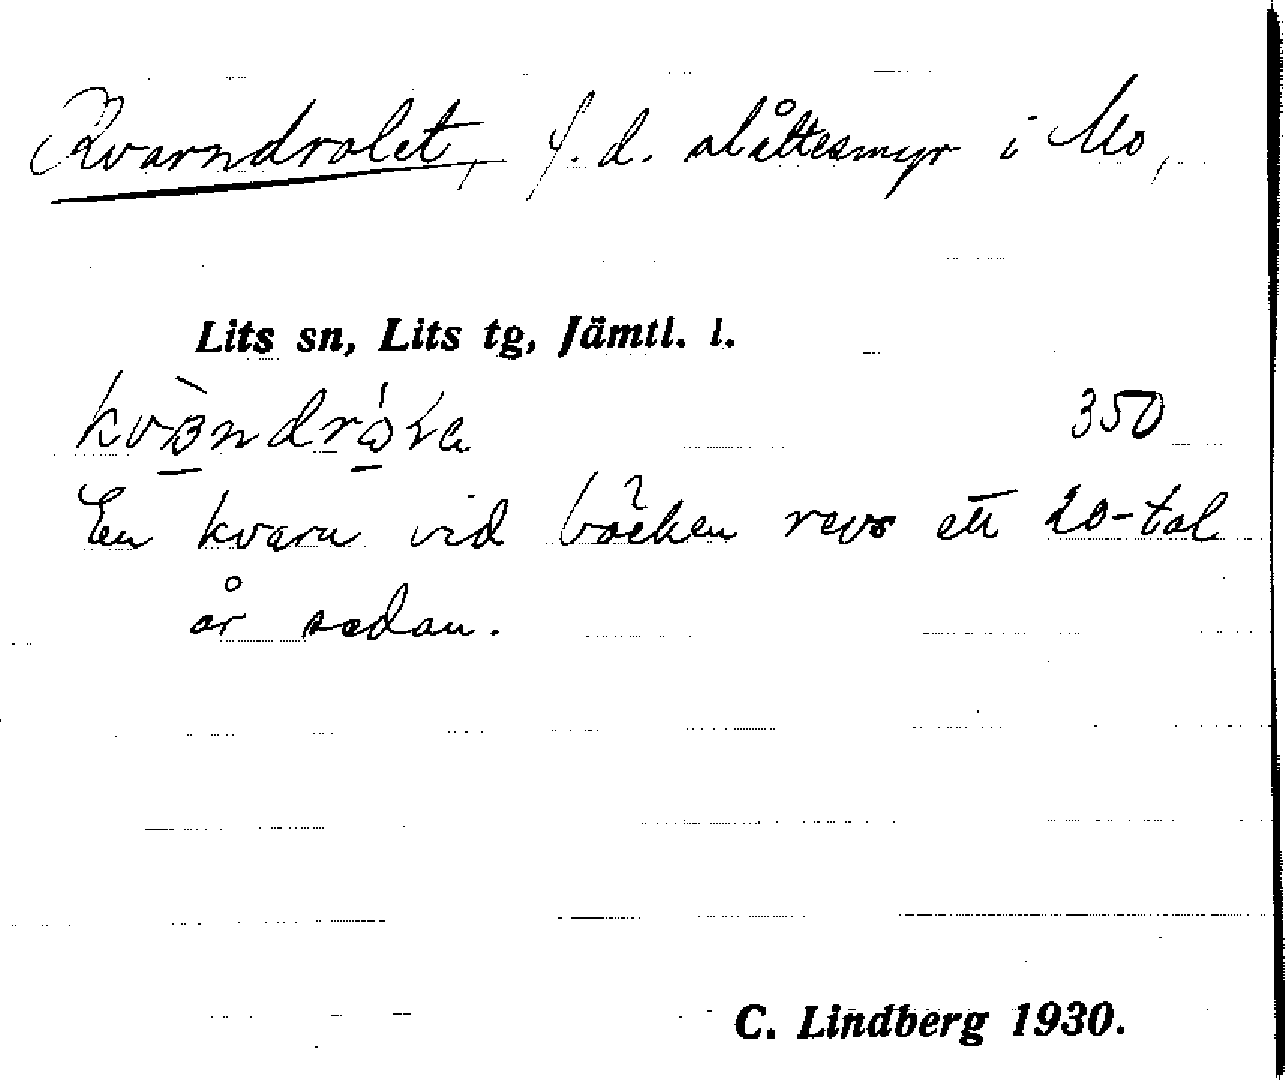 Kvarndrolet, f. d. slåttesmyr i Mo,
Lits sn, Lits tg, Jämtl. l.
350
En kvarn vid bäcken revs ett 20-tal
år sedan.
C. Lindberg 1930.